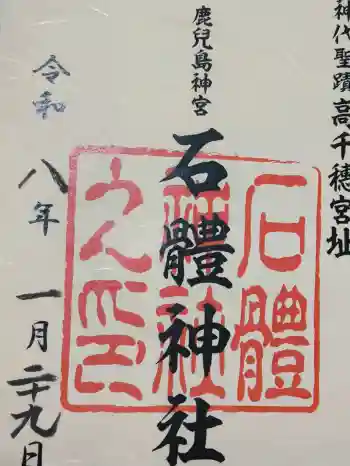 神代聖蹟高千穂宮址
鹿兒島神宮
石體神社
石體
神社
令和八年一月二十九日